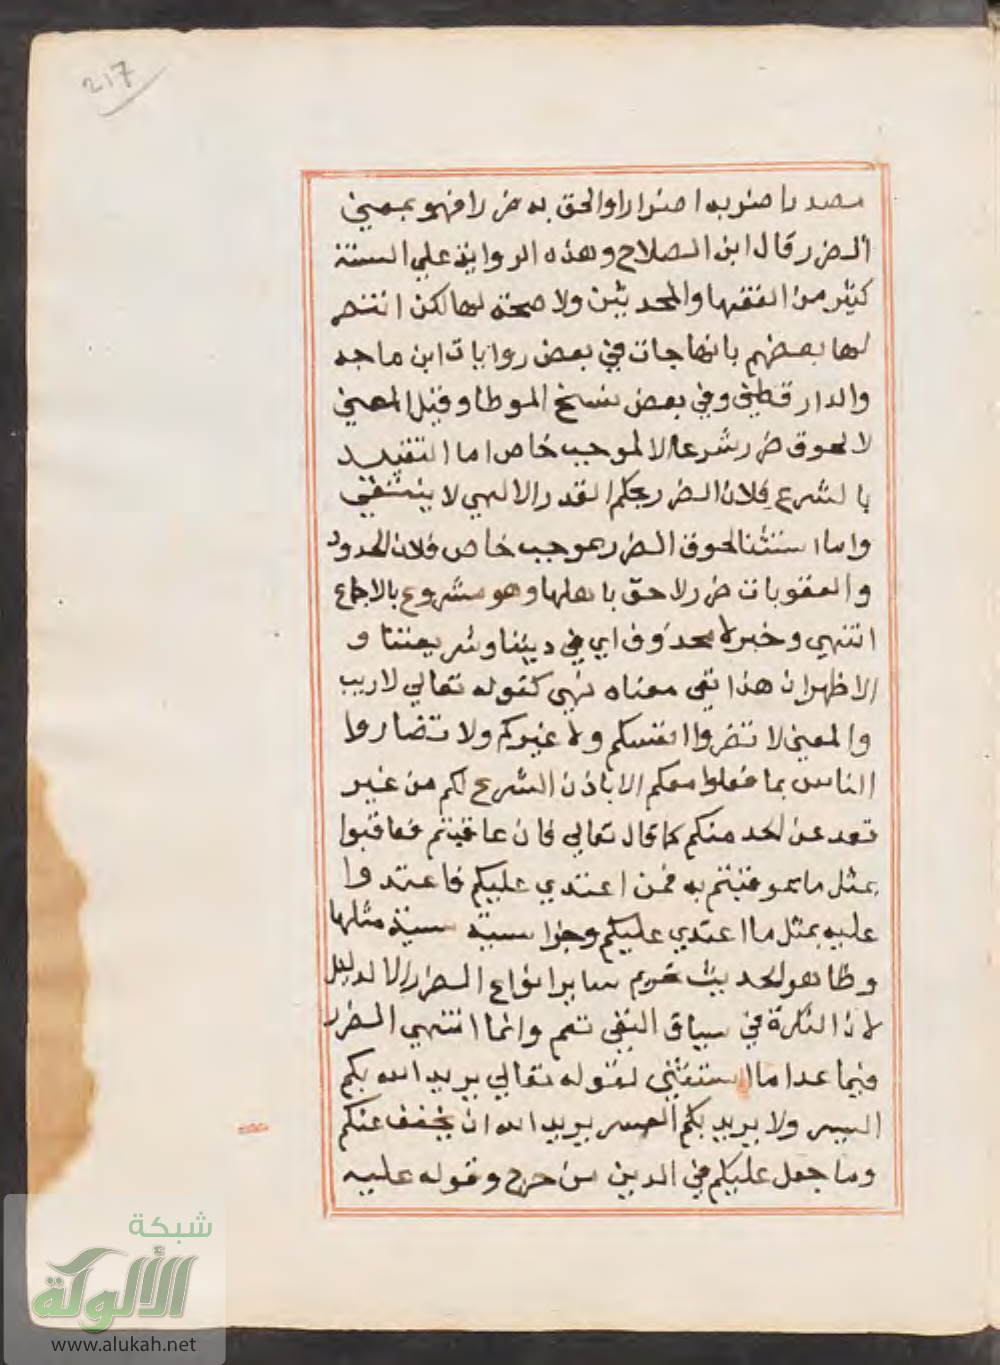 217
مصدر اضر به اضرارا والحق به ضررا فهو بمعني
الضرر قال ابن الصلاح وهذه الرواية علي السنة
كثير من الفقها والمحدثين ولا صحة لها لكن انتصر
لها بعضهم بانها جات في بعض روايات ابن ماجه
والدارقطني وفي بعض نسخ الموطا وقيل المعني
لا لحوق ضرر شرعا الا لموجب خاص اما التقييد
بالشرع فلان الضرر بحكم القدر الالهي لا ينتفي
واما استثنا لحوق الضرر بموجب خاص فلان الحدود
والعقوبات ضرر لاحق باهلها وهو مشروع بالاجماع
انتهي وخبر لا محذوف اي في ديننا وشريعتنا و
الاظهر ان هذا نفي معناه نهي كقوله تعالي لا ريب
والمعني لا تضروا انفسكم ولا غيركم ولا تضاروا
الناس بما فعلوا معكم الا باذن الشرع لكم من غير
تعد عن احد منكم كما قال تعالي فان عاقبتم فعاقبوا
بمثل ما عوقبتم به فمن اعتدي عليكم فاعتدوا
عليه بمثل ما اعتدي عليكم وجزا سيئة سيئة مثلها
وظاهر الحديث تحريم ساير انواع الضرر الا لدليل
لان النكرة في سياق النفي تعم وانما انتهي الضرر
فيما عدا ما استثني لقوله تعالي يريد الله بكم
اليسر ولا يريد بكم العسر يريد الله ان يخفف عنكم
وما جعل عليكم في الدين من حرج وقوله عليه
شبكة
الألوكة
www.alukah.net